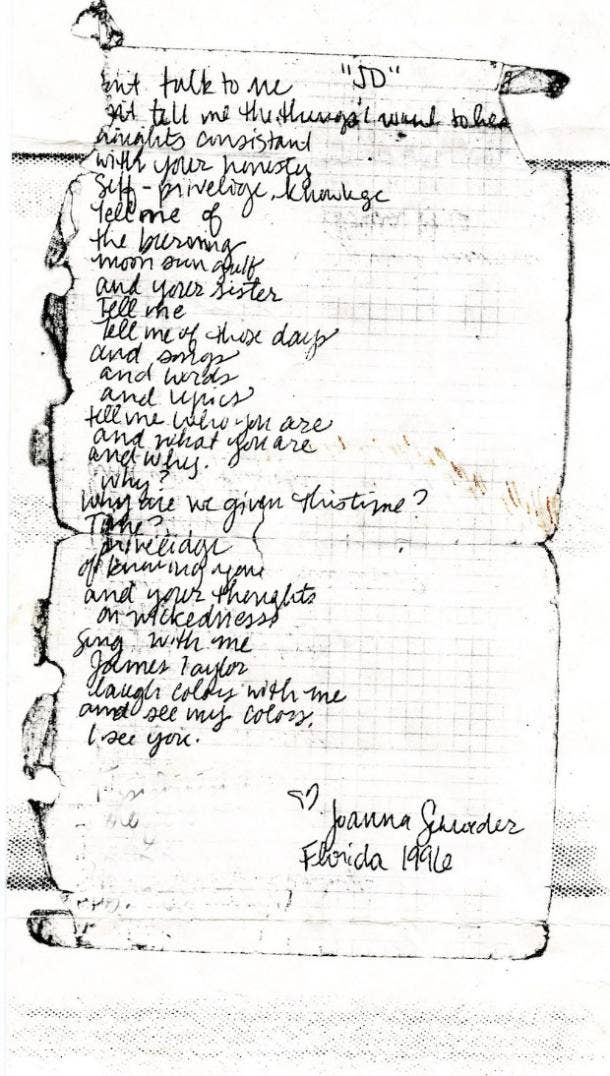 "JD"
talk to me
tell me the things I want to hea
consistant
with your honesty
Self-privelige, knowlege
Tell me of
the burning
moon sun gulf
and your sister
Tell me
Tell me of those days
and songs
and words
and lyrics
tell me who you are
and what you are
and why.
why?
why are we given this time?
Time?
priveleidge
of knowing you
and your thoughts
on wickedness
Sing with me
James Taylor
laugh colors with me
and see my colors.
I see you.
Joanna Schroeder
Florida 1996